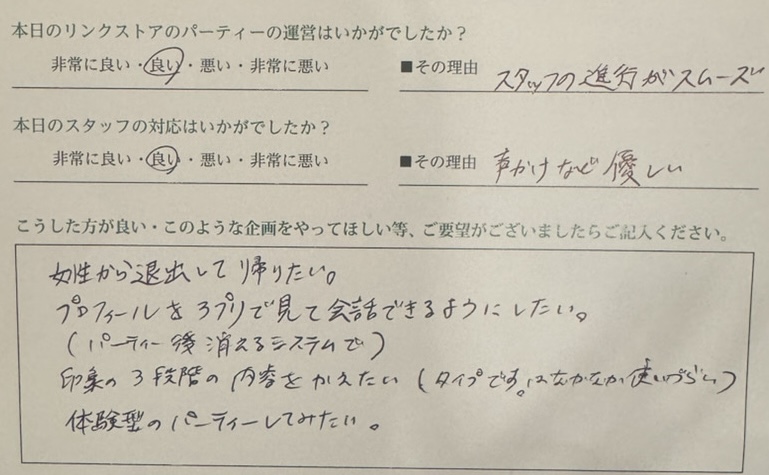 本日のリンクストアのパーティーの運営はいかがでしたか？
非常に良い・良い・悪い・非常に悪い ■その理由 スタッフの進行がスムーズ
本日のスタッフの対応はいかがでしたか？
非常に良い・良い・悪い・非常に悪い ■その理由 声かけなど優しい
こうした方が良い・このような企画をやってほしい等、ご要望がございましたらご記入ください。
女性から退出して帰りたい。
プロフィールをアプリで見て会話できるようにしたい。
（パーティー後消えるシステムで）
印象の3段階の内容をかえたい（タイプです。はなかなか使いづらい）
体験型のパーティーしてみたい。